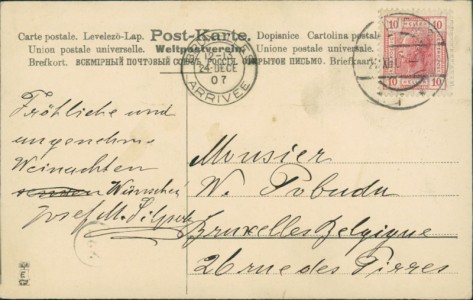 Carte postale. Levelező-Lap. Post-Karte. Dopisnice Cartolina postale
Union postale universelle. Weltpostverein. Unione postale universale.
Brefkort. ВСЕМІРНЫЙ ПОЧТОВЫЙ СОЮЗ. РОССІЯ. ОТКРЫТОЕ ПИСЬМО. Briefkaart
10 10
10 10
12-13
24 DECE
07
ARRIVÉE
Fröhliche und
angenehme
Weinachten
Wünschen
Josef M.
Monsieur
W. Pobuda
Bruxelles Belgique
26 rue des Pierres